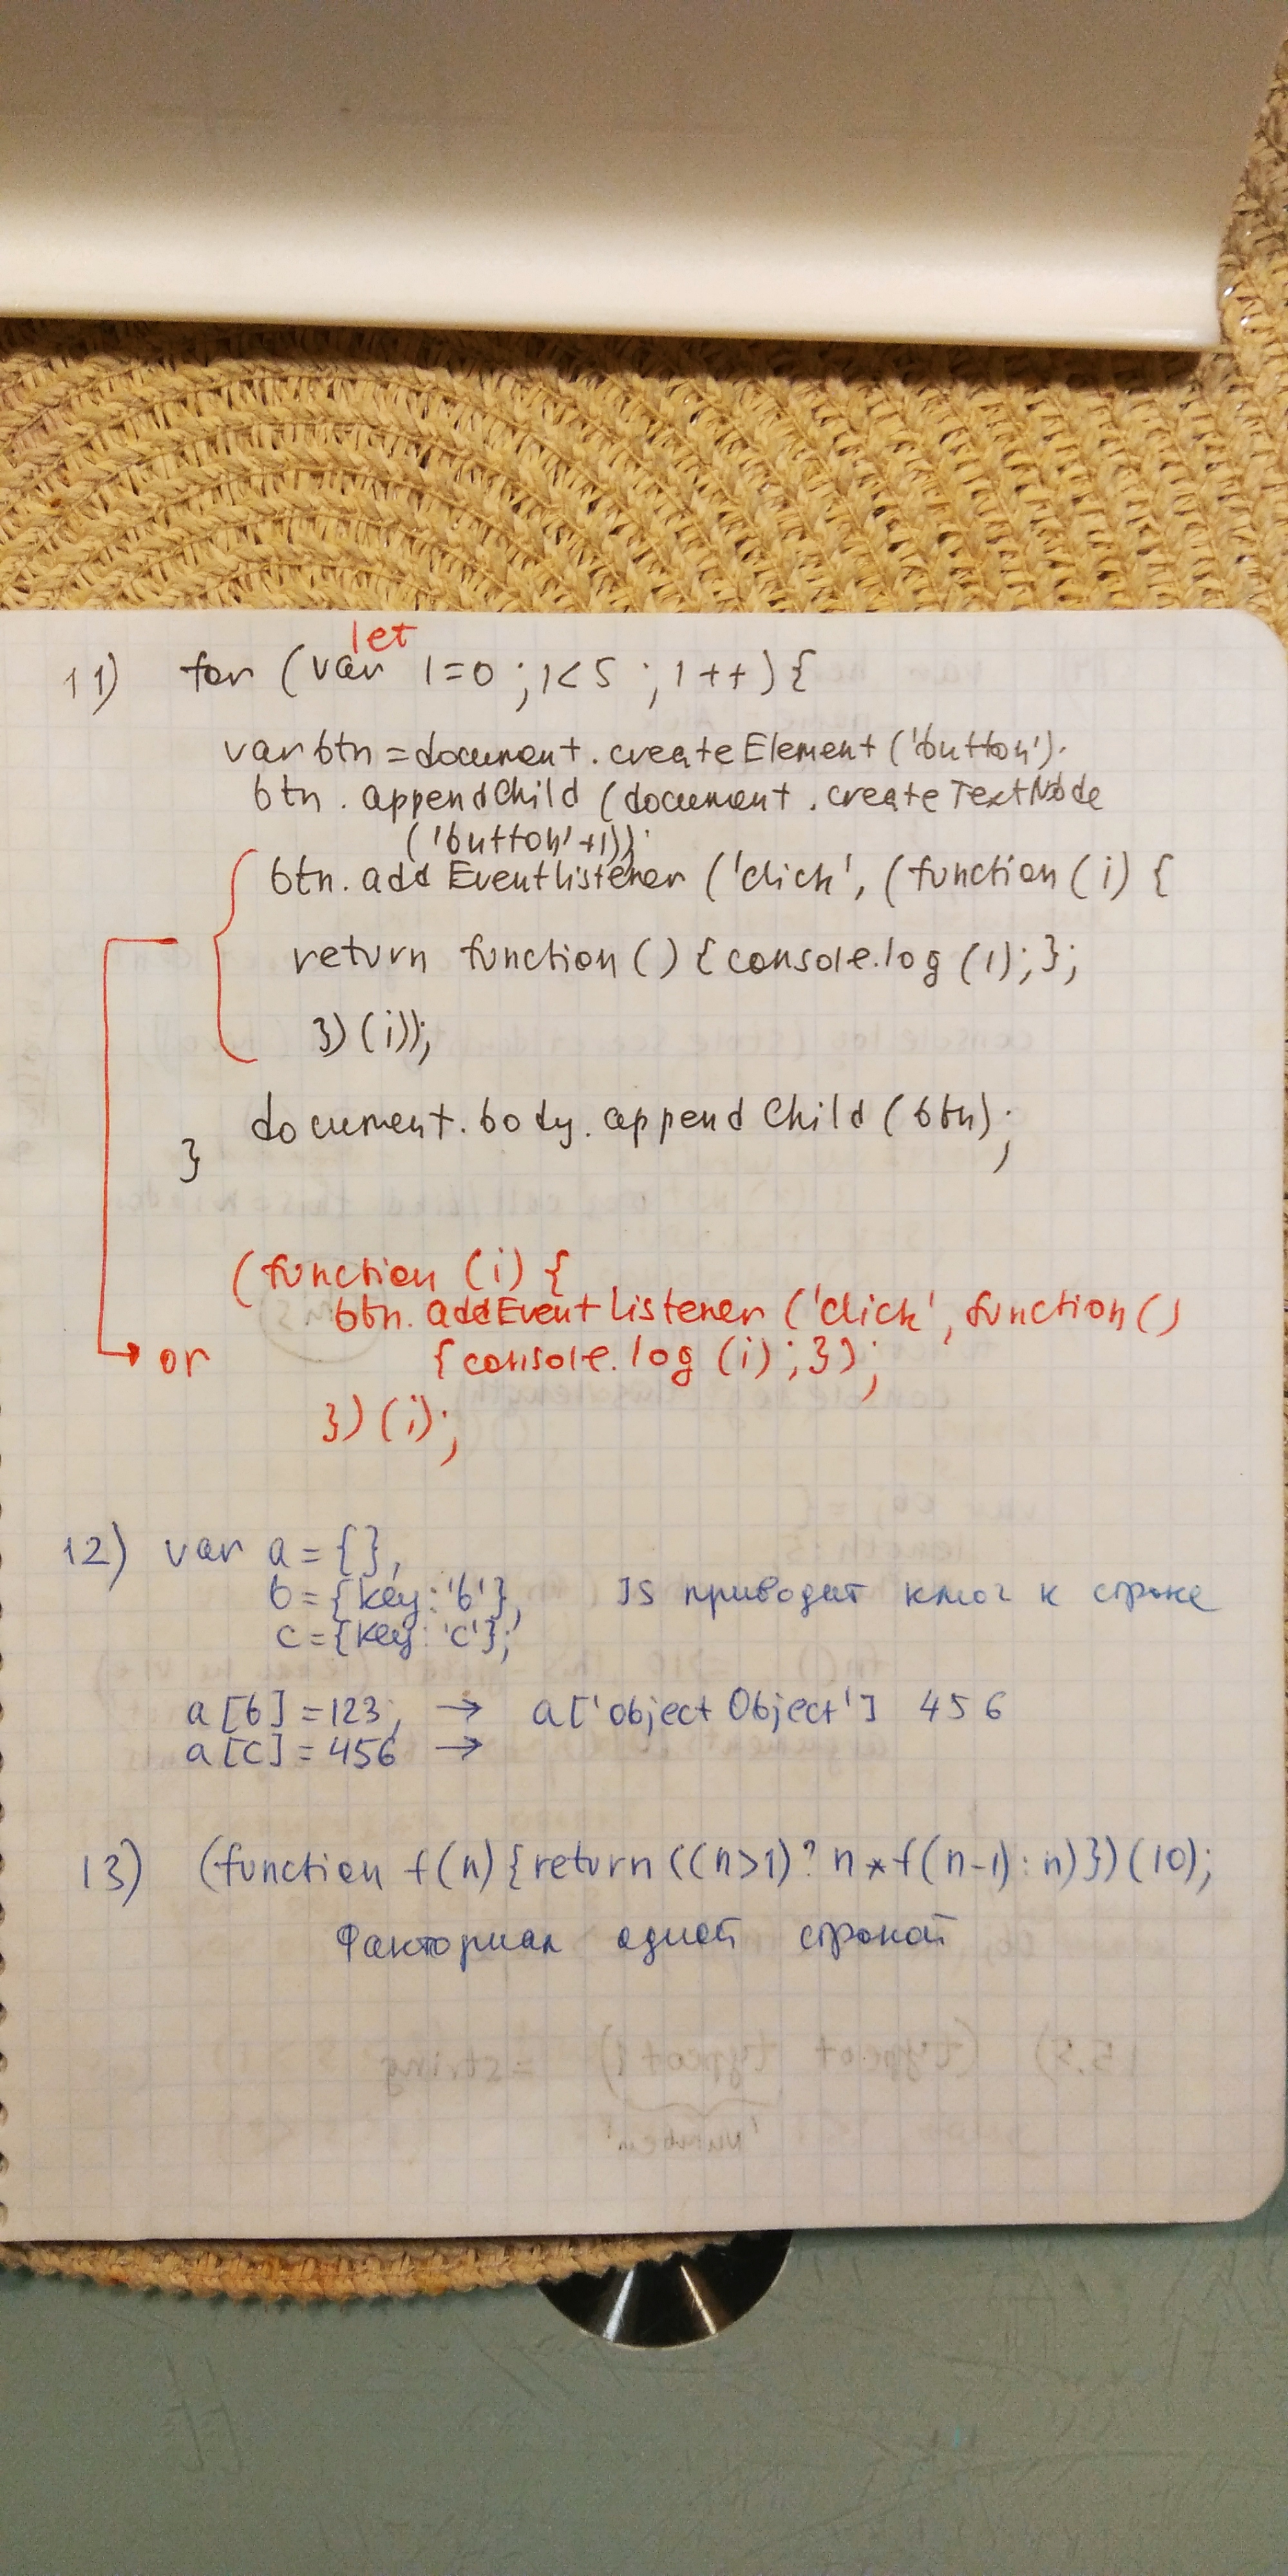 let
11) for (var i=0; i<5; i++){
var btn = document.createElement('button').
btn.appendChild(document.createTextNode
('button'+i));
btn.addEventListener('click', (function(i) {
return function() {console.log(i);};
})(i));
document.body.appendChild(btn);
}
(function (i) {
btn.addEventListener('click', function()
or {console.log(i);});
})(i);
12) var a = {},
b = {key:'b'}, JS приводит ключ к строке
c = {key:'c'};
a[b] = 123; → a['object Object'] 456
a[c] = 456 →
13) (function f(n) {return ((n>1)? n*f(n-1): n)})(10);
Факториал одной строкой